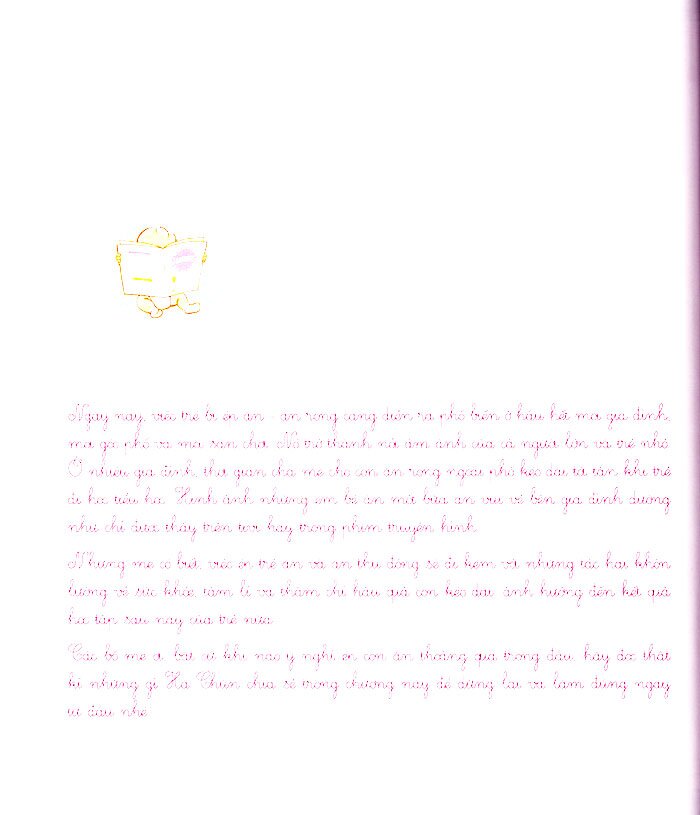 Ngày nay, việc trẻ bị ép ăn - ăn rong càng diễn ra phổ biến ở hầu hết mọi gia đình,
mọi góc phố và mọi sân chơi. Nó trở thành nỗi ám ảnh của cả người lớn và trẻ nhỏ.
Ở nhiều gia đình, thời gian cha mẹ cho con ăn rong ngoài phố kéo dài tới tận khi trẻ
đi học tiểu học. Hình ảnh những em bé ăn một bữa ăn vui vẻ bên gia đình dường
như chỉ được thấy trên tivi hay trong phim truyền hình.
Nhưng mẹ có biết, việc ép trẻ ăn và ăn thụ động sẽ đi kèm với những tác hại khôn
lường về sức khỏe, tâm lí và thậm chí hậu quả còn kéo dài, ảnh hưởng đến kết quả
học tập sau này của trẻ nữa.
Các bố mẹ ơi, bất cứ khi nào ý nghĩ ép con ăn thoáng qua trong đầu, hãy đọc thật
kĩ những gì Hà Chũn chia sẻ trong chương này để dừng lại và làm đúng ngay
từ đầu nhé!